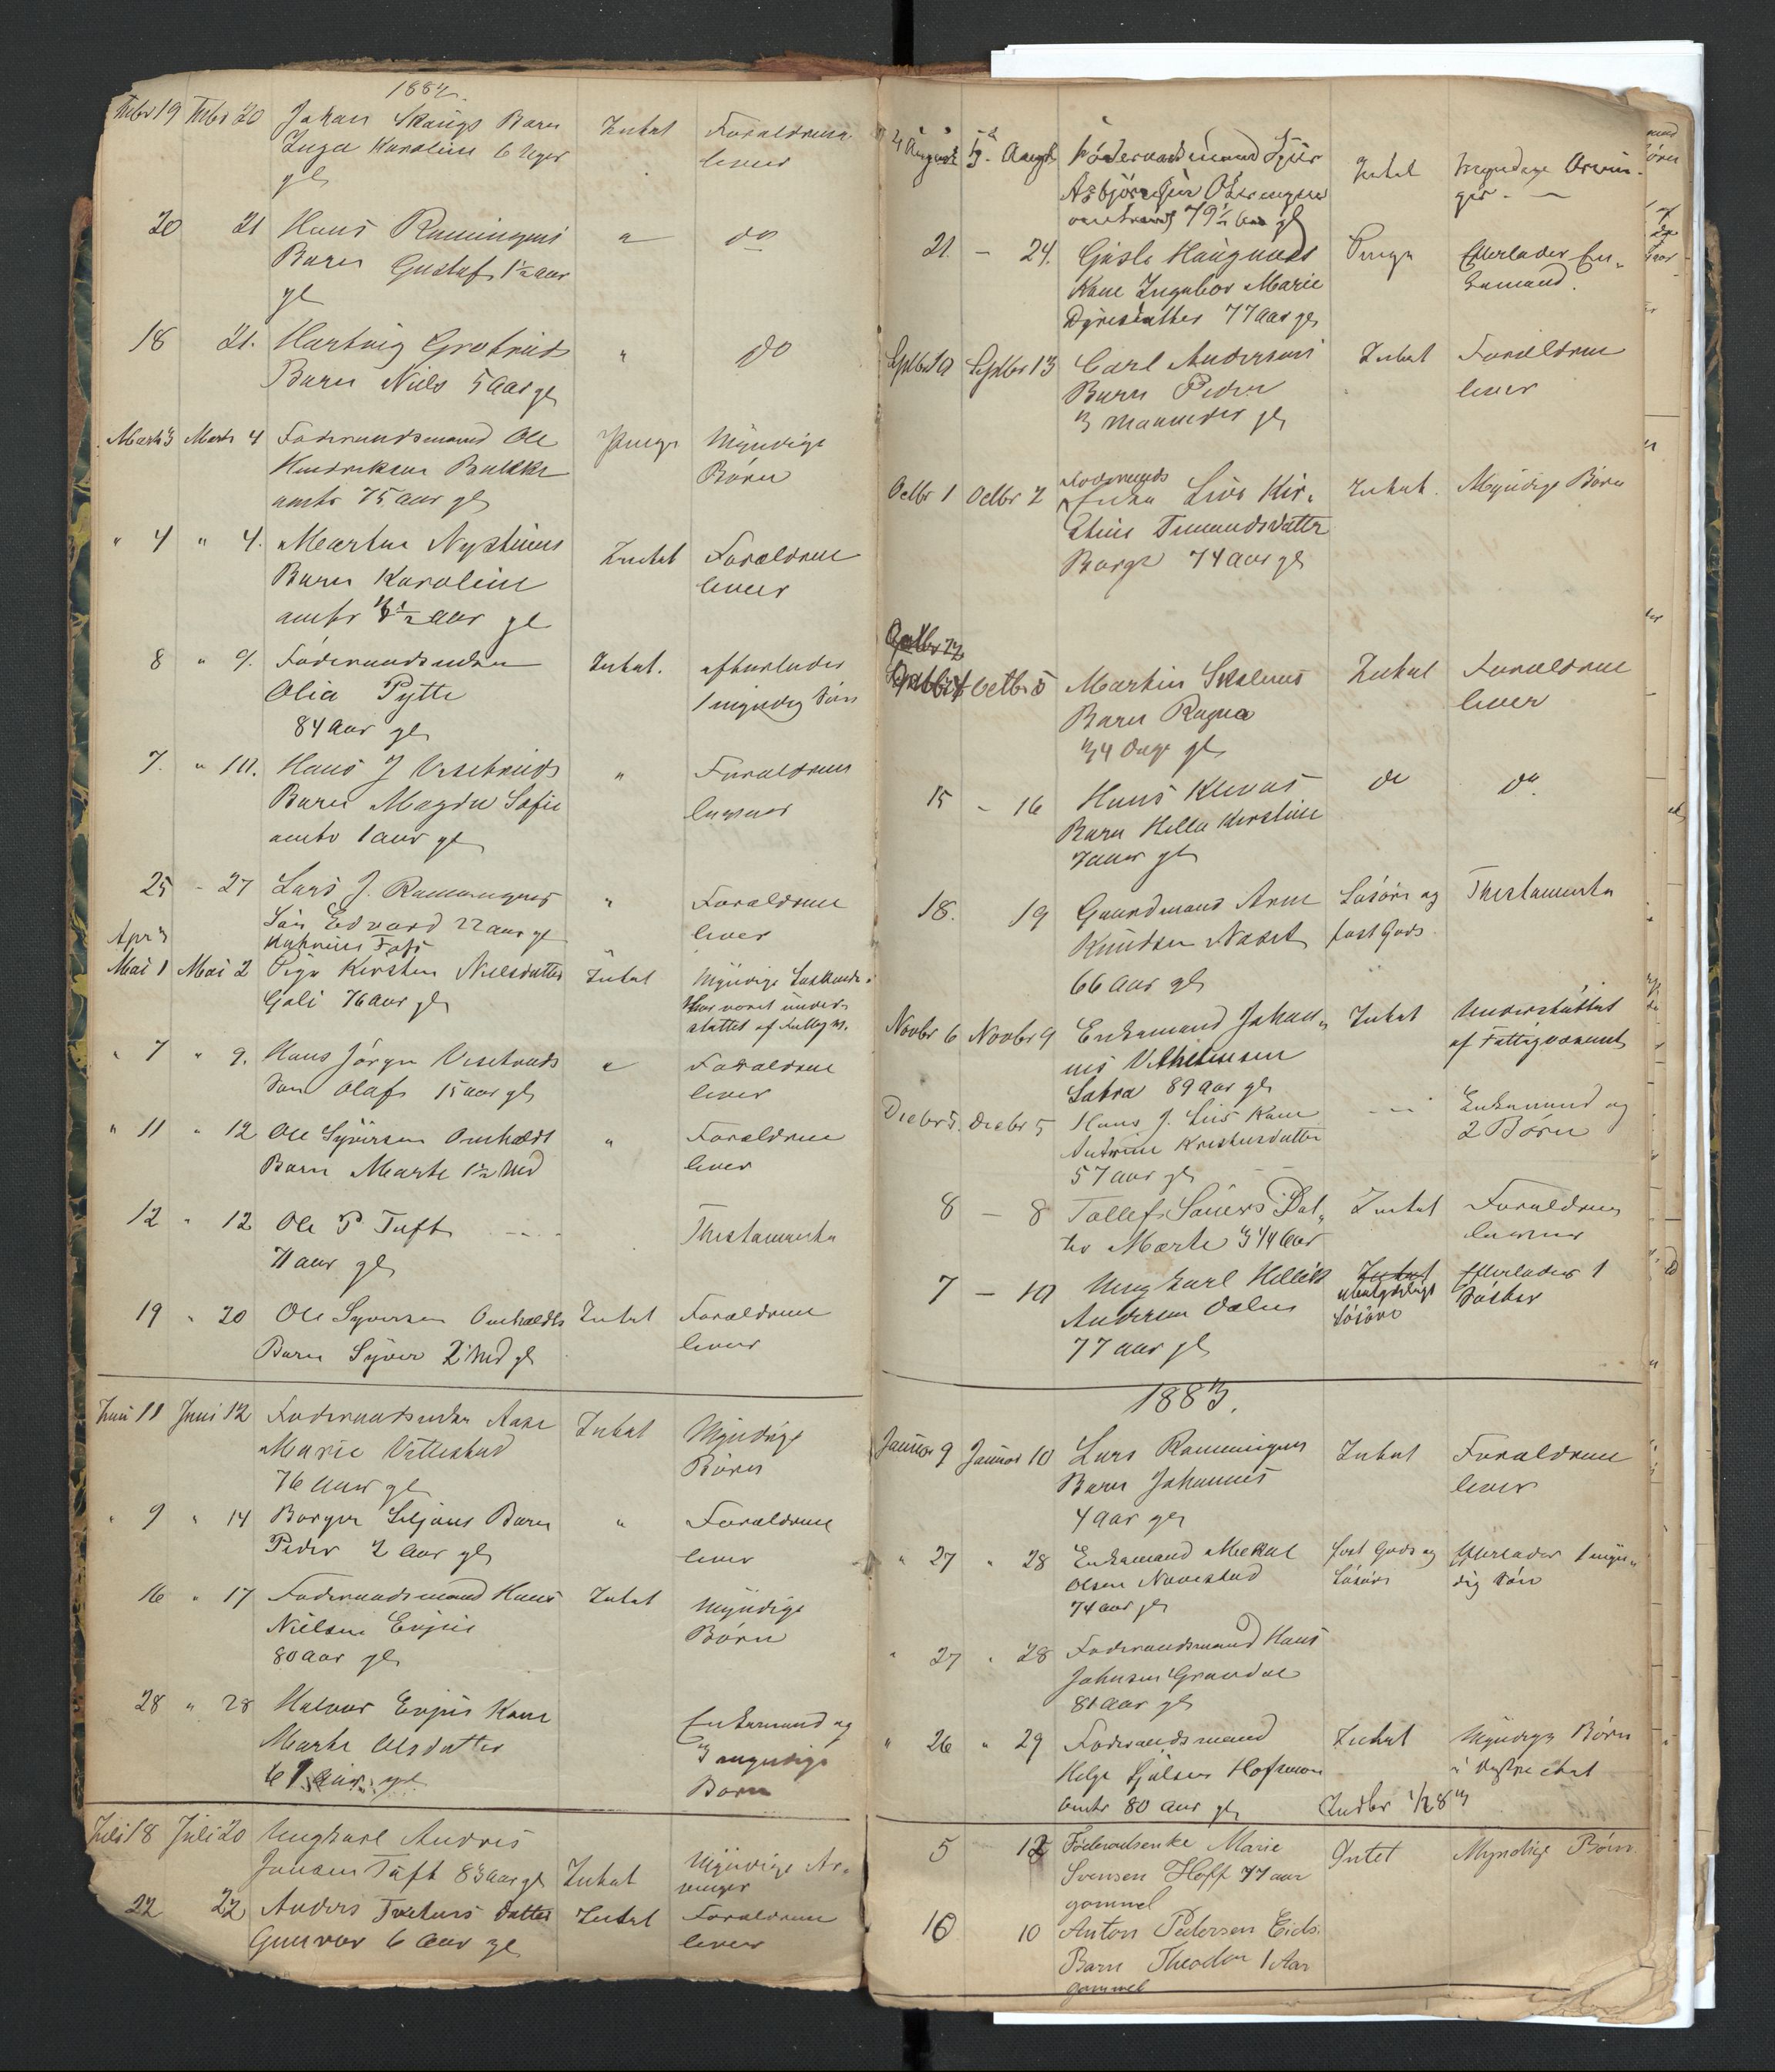 1882.
Febr 19 Febr 20 Johan Skougs Barn Intet Forældrene
Inga Karoline 6 Uger lever
gl
20 21 Hans Ramningens " do
Barn Gustaf 1½ aar
gl
18 21. Hartvig Grøtruds " do
Barn Niels 5 aar gl
Marts 3 Marts 4 Foderaadsmand Ole Penge Myndige
Hendriksen Bakke Børn
amtr 75 aar gl
" 4 " 4. Martin Nysteens Intet Forældrene
Barn Karoline lever
amtr ½ aar gl
8 " 9. Føderaadsenken Intet. efterlader
Olia Pytte 1 myndig Søn
84 aar gl
7. " 10. Hans J Vesetruds " Forældrene
Barn Magda Sofie lever
amtr 1 aar gl
25 - 27 Lars J. Ramningens " Forældrene
Søn Edvard 22 aar gl lever
Apr 3
Mai 1 Mai 2 Pige Kirsten Nielsdatter Intet Myndige Søskende.
Goli 76 aar gl Har været under-
støttet af Fattigv.
" 7 " 9. Hans Jørgen Vesetruds " Forældrene
Søn Olaf 15 aar gl lever
" 11 " 12 Ole Syversen Omholdt " Forældrene
Barn Marte 1½ Md lever
12 " 12 Ole P Tuft Thestamente
71 aar gl
19 " 20 Ole Syversen Omholdts Intet Forældrene
Barn Syver 2 Md gl lever
Juni 11 Juni 12 Foderaadsenken Aase Intet Myndige
Marie Vettestad Børn
76 aar gl
" 9 " 14 Borger Liljans Barn " Forældrene
Peder 2 aar gl lever
16 " 17 Foderaadsmand Hans Intet Myndige
Nielsen Enjie Børn
80 aar gl
28 " 28 Halvor Enjies Kone Enkemand og
Marte Olsdatter 3 myndige
61 aar gl Børn
Juli 18 Juli 20 Ungkarl Andres
Jonsen Tuft 83 aar gl Intet Myndige Ar-
vinger
22 22 Anders Datter Intet Forældrene
Gunvor 6 aar gl lever
4 August August Føderaadsmand Intet Myndige Arvin-
Asbjørnsen ger. —
79½ aar gl
21. – 24. Gisle Haugnæs Penge Efterlader En-
Kone Ingebor Marie kemand.
77 aar gl
Septbr 10 Septbr 13 Carl Andersens Intet Forældrene
Barn Peder lever
3 Maaneder gl
Octbr 1 Octbr 2 Foderaads
Enke Live Kir- Intet. Myndige Børn
stine Tomundsdatter
Borge 74 aar gl
Octbr 5 Martin Barn Ragna Intet Forældrene
lever
Dage gl
15 – 16 Hans Klevas do do.
Barn Hella Kirstine
7 aar gl
18. 19 Gaardmand Arne Løsøre og Thestamente
Knudsen Næset fast Gods
66 aar gl
Novbr 6 Novbr 9 Enkemand Johan- Intet Understøttet
nes Vilhelmsen af Fattigvæsenet
Sabra 89 aar gl
Decbr 5. Decbr 5 Hans J. Lies Kone – – – Enkemand og
2 Børn
57 aar gl
8 – 8 Tollef Sønes Dat- Intet Forældrene
ter Marte 3 1/4 aar lever
7 – 10 Ungkarl Hellik Intet Efterlader 1
Andersen Dalen ubetydeligt Søster
Løsøre
77 aar gl
1883.
Januar 9 Januar 10 Lars Ramningens Intet Forældrene
Barn Johannes lever
4 aar gl
" 27 " 28 Enkemand Mekal fast Gods og Efterlader 1 myn-
Olsen Navestad Løsøre dig Søn
74 aar gl
" 27 " 28 Foderaadsmand Hans
Johnsen Grandal
81 aar gl
" 26 " 29 Foderaadsmand Intet Myndige Børn
Helge
amtr 80 aar gl
5 – 12 Føderaadsenke Marie Intet Myndige Børn.
Svensen Hoff 77 aar
gammel
10 10 Anton Pedersen Eids.
Barn Theodor 1 Aar
gammel